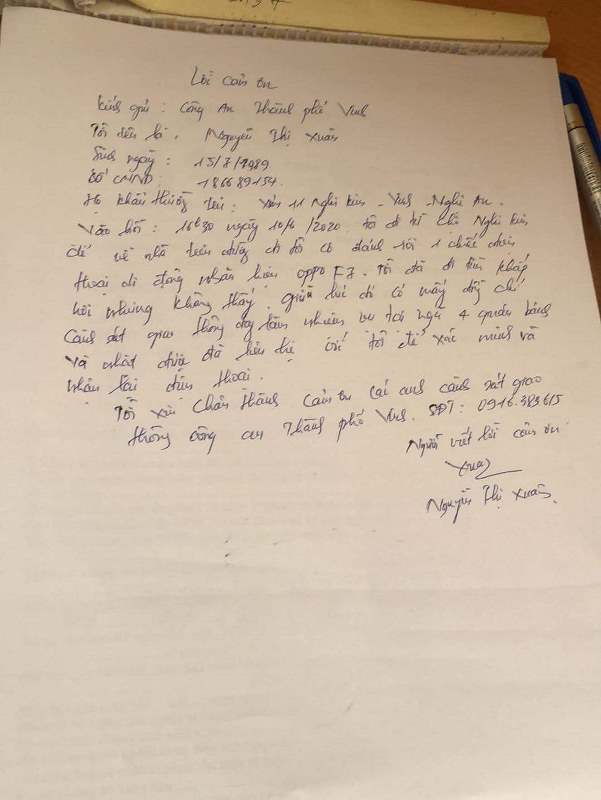 Lời cảm ơn
Kính gửi : Công An Thành phố Vinh
Tôi tên là : Nguyễn Thị Xuân
Sinh ngày : 15/7/1989
Số CMND : 186689154.
Hộ khẩu thường trú : Xóm 11 Nghi Kim - Vinh - Nghệ An.
Vào hồi : 16h30 ngày 10/6/2020 tôi đi từ chợ Nghi Kim
để về nhà trên đường đi tôi có đánh rơi 1 chiếc điện
thoại di động nhãn hiệu oppo F7. Tôi đã đi tìm khắp
nơi nhưng không thấy. giữa lúc đó có mấy đồng chí
Cảnh sát giao thông đang làm nhiệm vụ tại ngã 4 quán bánh
và nhặt được đã liên hệ với tôi để xác minh và
nhận lại điện thoại.
Tôi xin chân thành cảm ơn các anh cảnh sát giao
thông công an Thành phố Vinh. SĐT : 0916.383615
Người viết lời cảm ơn
Xuân
Nguyễn Thị Xuân.